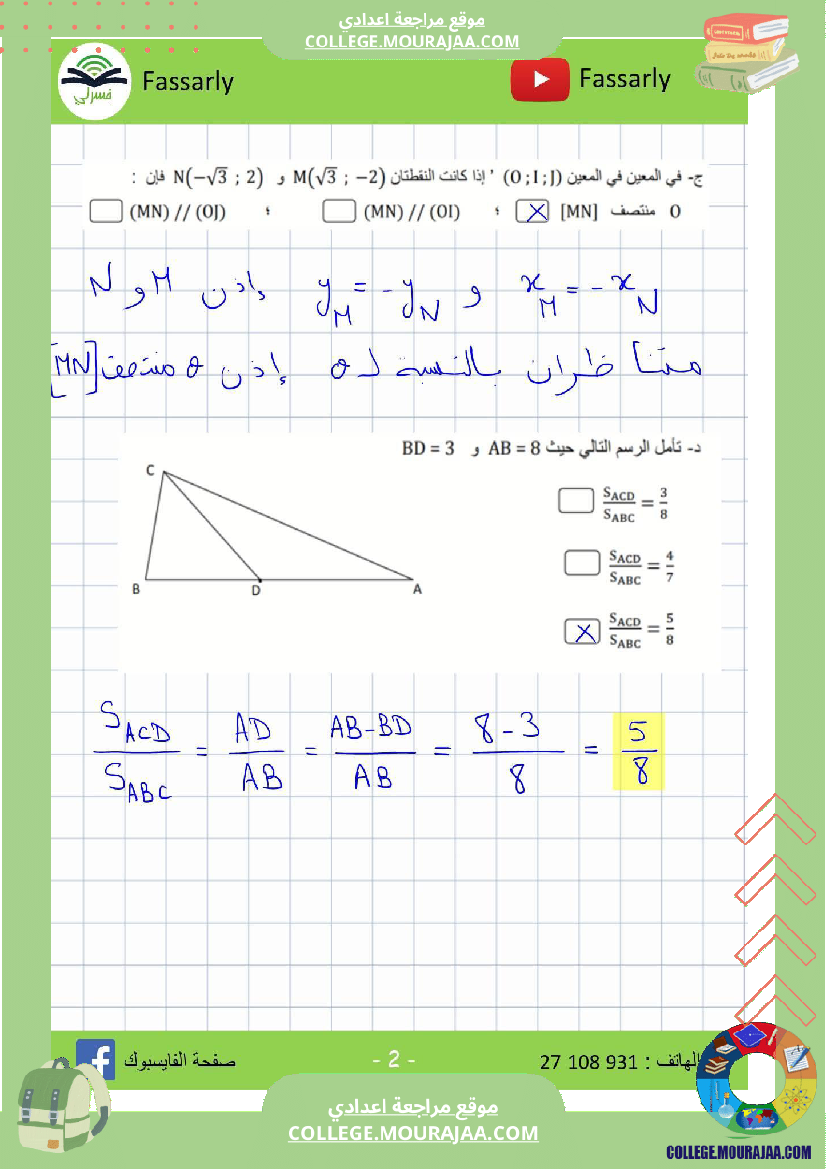 موقع مراجعة اعدادي
COLLEGE.MOURAJAA.COM
Fassarly
فسرلي
Fassarly
ج- في المعين في المعين (O ; I ; J) ' إذا كانت النقطتان M(√3 ; −2) و N(−√3 ; 2) فإن :
O منتصف [MN] ☒ ؛ (MN) // (OI) ☐ ؛ (MN) // (OJ) ☐
x_M = - x_N و y_M = - y_N إذن M و N
متناظران بالنسبة لـ O إذن O منتصف [MN]
د- تأمل الرسم التالي حيث AB = 8 و BD = 3
C
B
D
A
S_ACD/S_ABC = 3/8
S_ACD/S_ABC = 4/7
☒ S_ACD/S_ABC = 5/8
S_ACD/S_ABC = AD/AB = AB-BD/AB = 8-3/8 = 5/8
صفحة الفايسبوك
- 2 -
الهاتف : 27 108 931
موقع مراجعة اعدادي
COLLEGE.MOURAJAA.COM
COLLEGE.MOURAJAA.COM